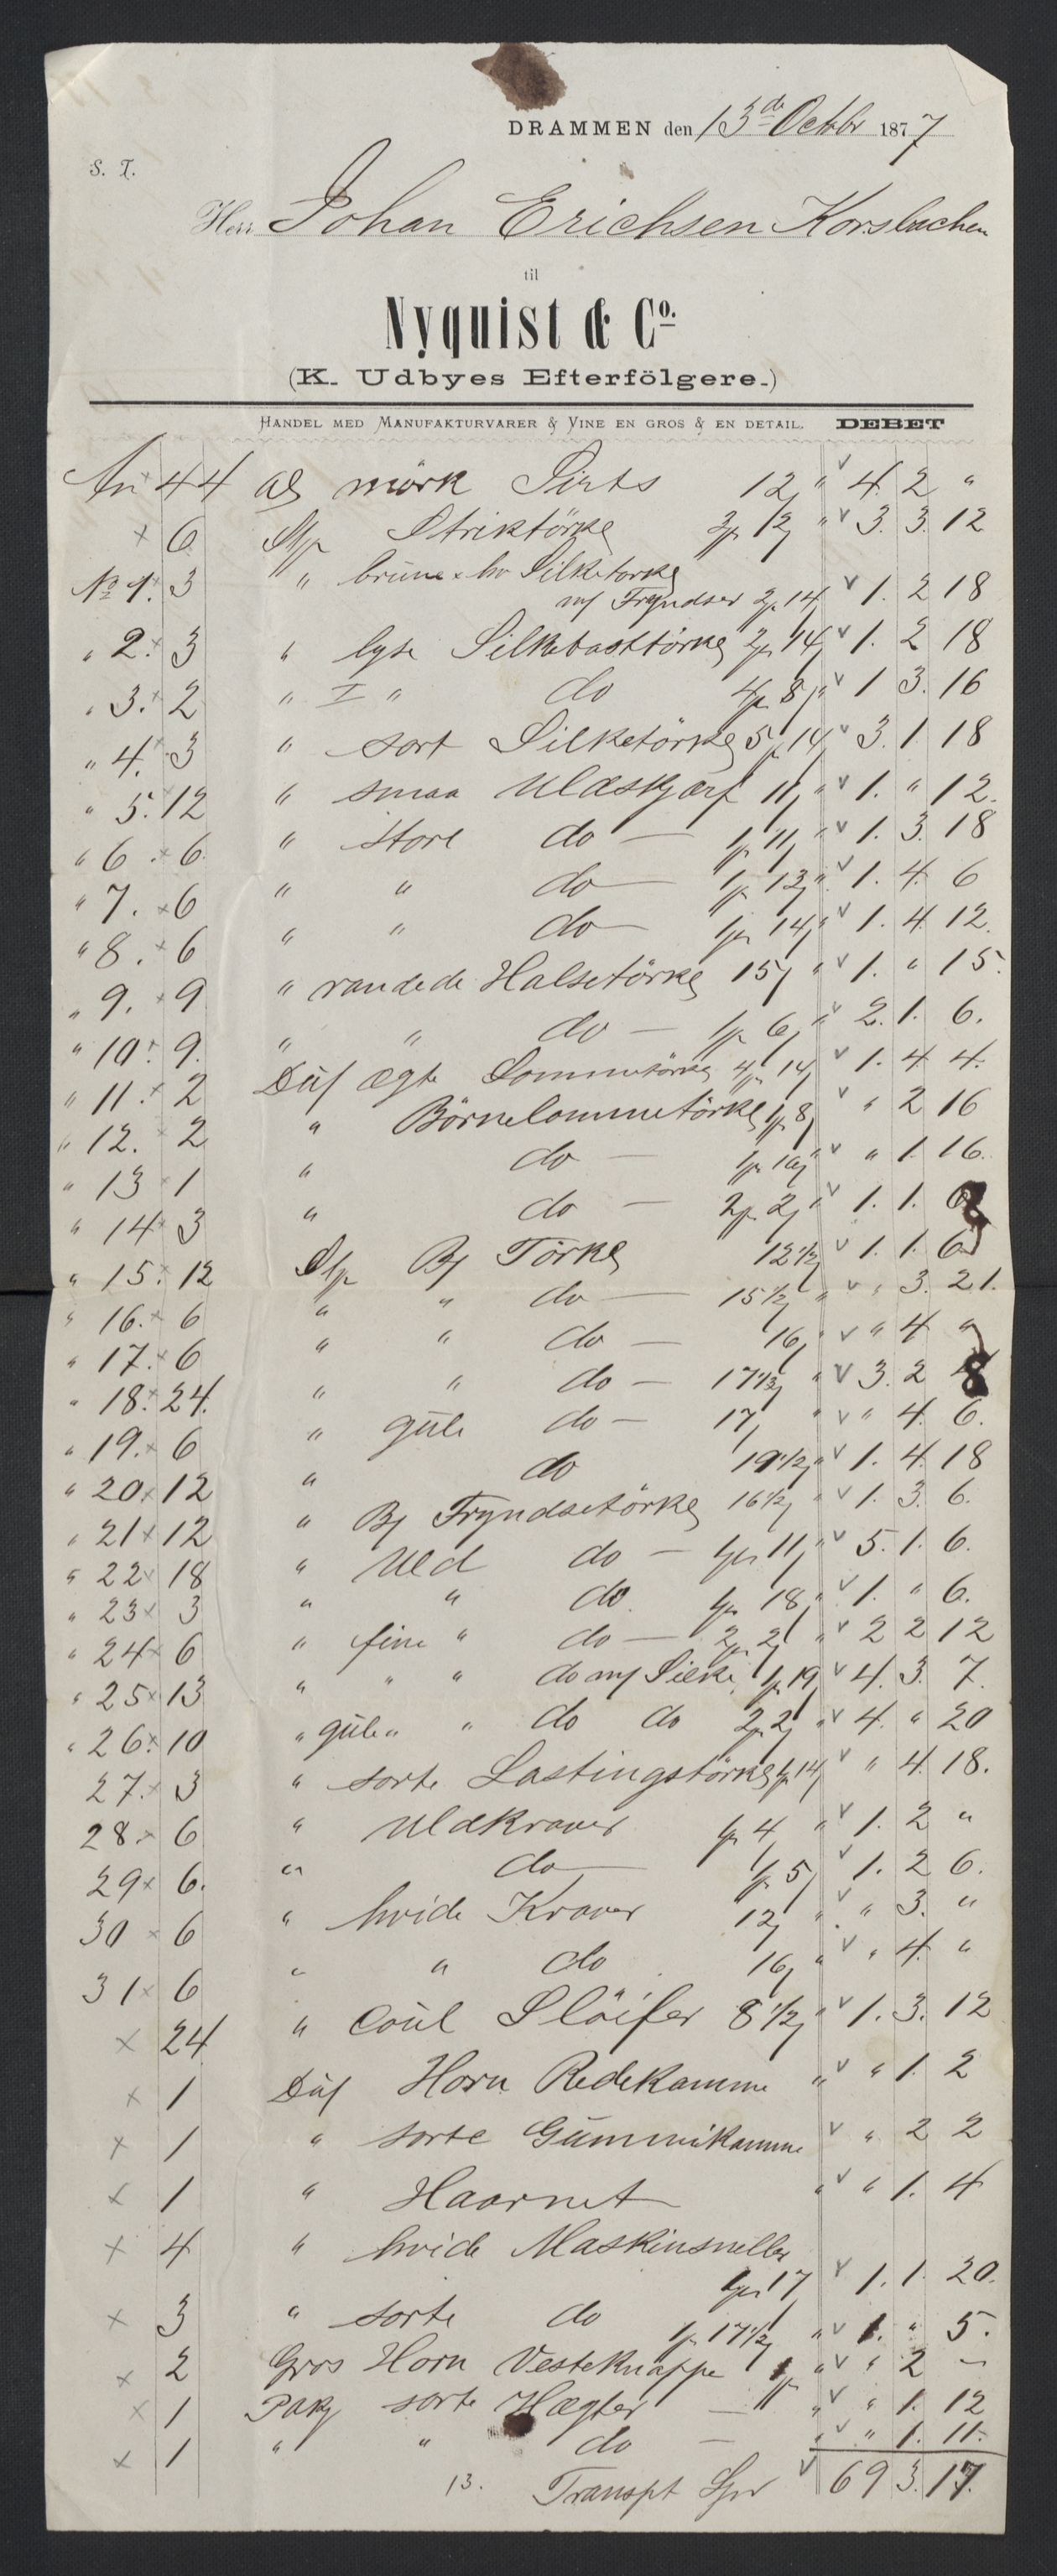 DRAMMEN den 13de Octbr 1877
S. T.
Herr Johan Erichsen Korsbachen
til
Nyquist & Co.
(K. Udbyes Efterfölgere.)
HANDEL MED MANUFAKTURVARER & VINE EN GROS & EN DETAIL. DEBET
44 al mörk Sirts 12 " 4 2 "
6 Stk Striktörkl 3 12 " 3. 3. 12
No 1. 3 " brune & hv Silketörkl
m/ Fryndser 2 14 1. 2 18
" 2. 3 " lyse Silkebasttörkl 2 14 1. 2 18
" 3. 2 " I " do 4 8 " 1 3. 16
" 4. 3 " sort Silketörkl 5 14 3. 1 18
" 5. 12 " smaa Uldskjærf 11 " 1. " 12.
" 6. 6 " Store do — 1 11 " 1. 3. 18
" 7. 6 " " do — 1 13 " 1. 4. 6
" 8. 6 " " do — 1 14 " 1. 4 12.
" 9. 9 " randede Halsetörkl 15 " 1. " 15.
" 10. 9. " " do — 1 6 " 2. 1. 6.
" 11. 2 Dus ægte Lommetörkl 4 14 1. 4 4.
" 12. 2 " Börnelommetörkl 1 8 " 2 16
" 13 1 " do — 1 16 " " 1. 16.
" 14 3 " do — 2 2 " 1. 1. 6
" 15. 12 Stk Bj Törkl 12 1/2 1. 1. 6
" 16. 6 " " do — 15 1/2 " " 3. 21.
" 17. 6 " " do — 16 " " 4 "
" 18. 24. " " do — 17 1/3 " 3. 2 8
" 19. 6 " gule do — 17 " " 4. 6.
" 20 12 " do 19 1/2 " 1. 4. 18
" 21 12 " Bj Fryndsetörkl 16 1/2 " 1. 3. 6.
" 22 18 " Uld do — 1 11 " 5. 1. 6.
" 23 3 " " do 1 18 " 1. " 6.
" 24 6 " fine " do — 2 2 " 2 2 12
" 25 13 " " " do m/ Silke 1 19 4. 3. 7.
" 26. 10 " gule " " do do 2 2 " 4. " 20
27. 3 " sorte Lastingstörkl 1 14 " " 4. 18.
28 6 " Uldkraver 1 4 " 1. 2 "
29 6. " do — 1 5 1. 2 6.
30 6 " hvide Kraver 12 " " 3. "
31 6 " " do 16 " " 4. "
24 " Coul Slöifer 8 1/2 " 1. 3. 12
1 Dus Horn Redekamme " " 1. 2
1 " sorte Gummikamme " 2 2
1 " Haarnet " " 1. 4
4 " hvide Maskinsneller
1 17 1. 1. 20.
3 " sorte do 1 17 1/2 " 1. " 5.
2 Gros Horn Vesteknappe 1 " " 2 —
1 Pak sorte Hægter — " " 1. 12
1 " " do — " " 1. 11.
13. Transpt Spr 69 3. 17.